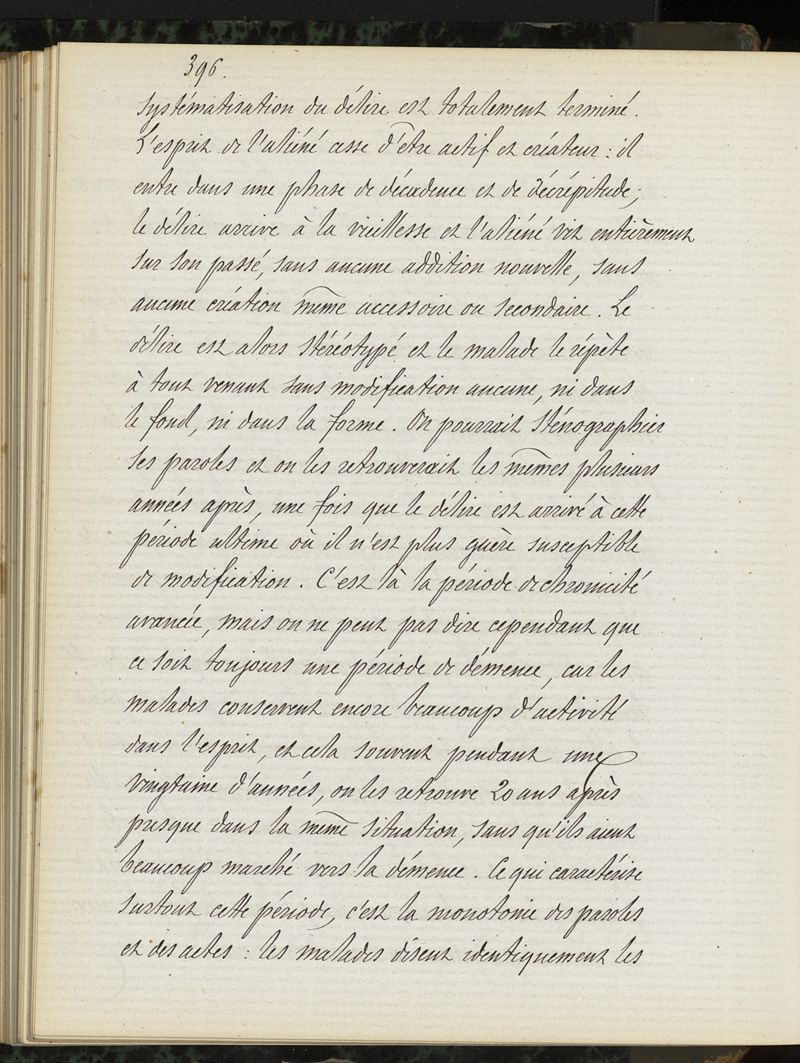 396.
systématisation du délire est totalement terminé.
L'esprit de l'aliéné cesse d'être actif et créateur : il
entre dans une phase de décadence et de décrépitude ;
le délire arrive à la vieillesse et l'aliéné vit entièrement
sur son passé, sans aucune addition nouvelle, sans
aucune création même accessoire ou secondaire. Le
délire est alors stéréotypé et le malade le répète
à tout venant sans modification aucune, ni dans
le fond, ni dans la forme. On pourrait sténographier
ses paroles et on les retrouverait les mêmes plusieurs
années après, une fois que le délire est arrivé à cette
période ultime où il n'est plus guère susceptible
de modification. C'est là la période de chronicité
avancée, mais on ne peut pas dire cependant que
ce soit toujours une période de démence, car les
malades conservent encore beaucoup d'activité
dans l'esprit, et cela souvent pendant une
vingtaine d'années, on les retrouve 20 ans après
presque dans la même situation, sans qu'ils aient
beaucoup marché vers la démence. Ce qui caractérise
surtout cette période, c'est la monotonie des paroles
et des actes : les malades disent identiquement les